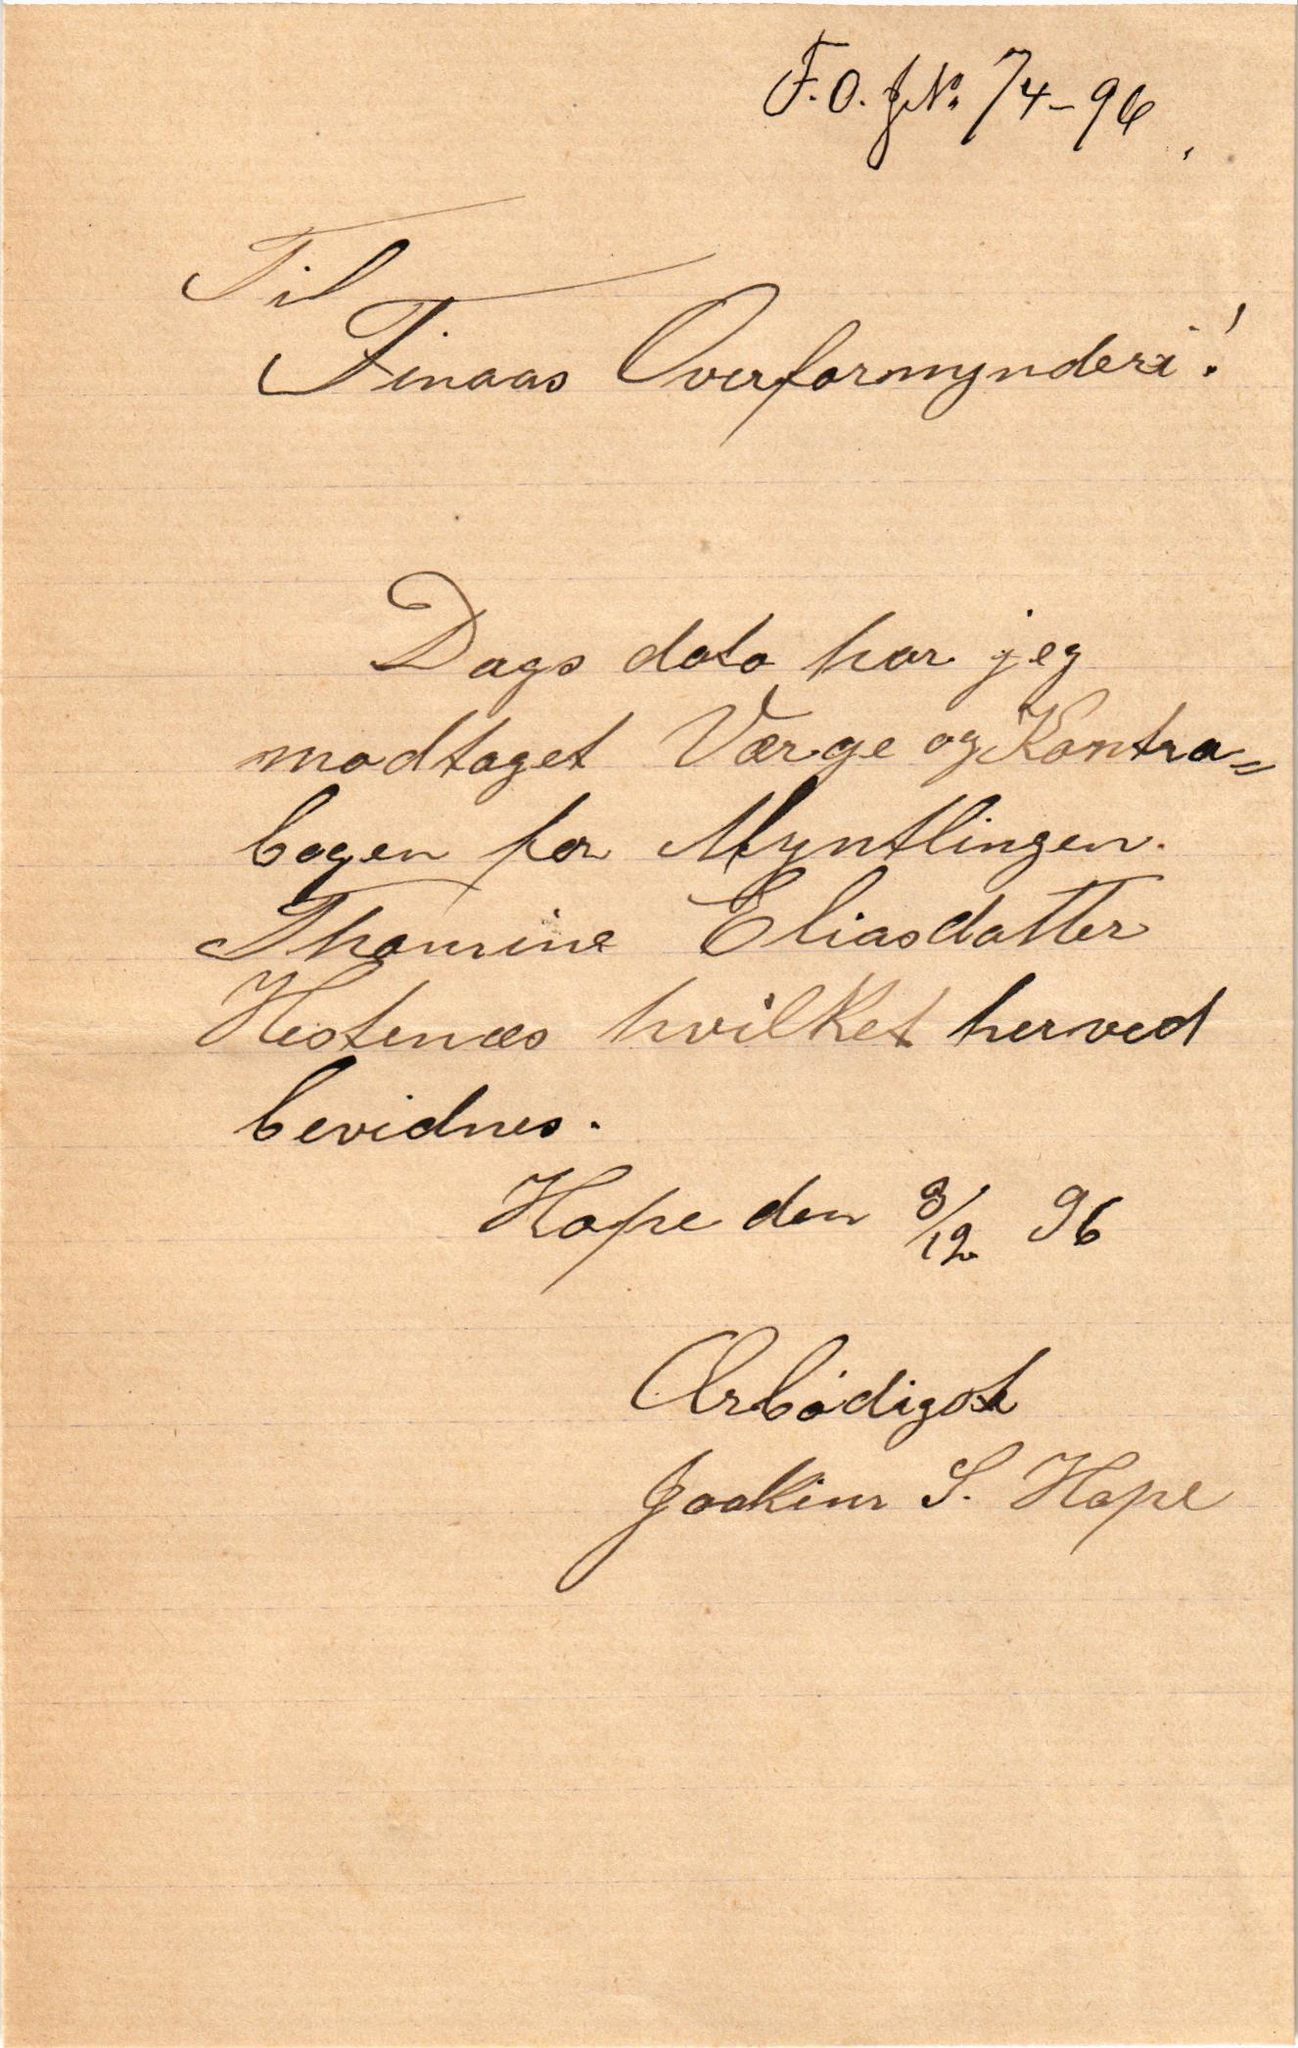 F.O. JN. 74-96
Til
Finaas Overformynderi!
Dags dato har jeg
modtaget Værge og Kontra=
bogen for Myntlingen.
Thomine Eliasdatter
Hestenæs hvilket herved
bevidnes.
Hope den 8/12 96
Ærbødigst
Joakim S. Hope